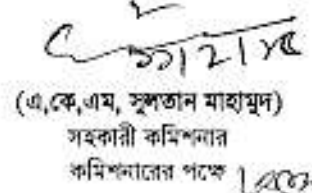 (এ,কে,এম, সুলতান মাহামুদ)
সহকারী কমিশনার
কমিশনারের পক্ষে